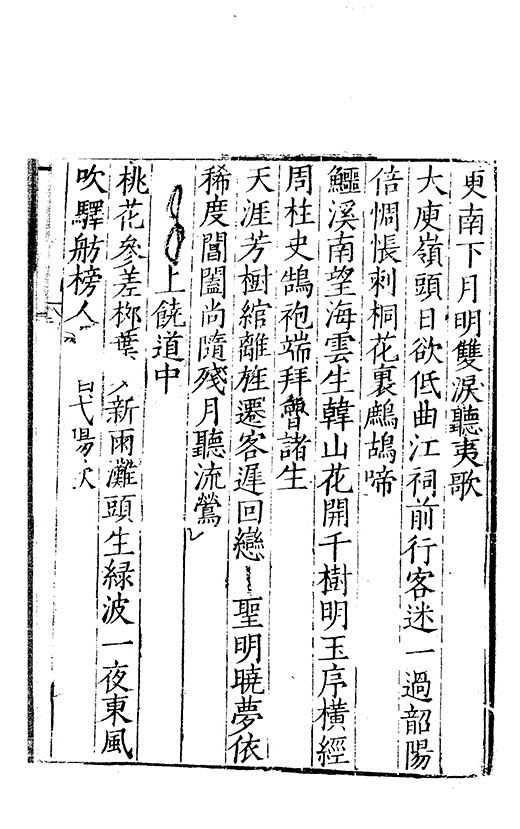 更南下月明雙淚聽夷歌
大庾嶺頭日欲低曲江祠前行客迷一過韶陽
倍惆悵刺桐花裏鷓鴣啼
鱷溪南望海雲生韓山花開千樹明玉序橫經
周柱史鵠袍端拜魯諸生
天涯芳樹綰離旌遷客遲回戀聖明曉夢依
稀度閶闔尚隨殘月聽流鶯
上饒道中
桃花參差柳葉新雨灘頭生綠波一夜東風
吹驛舫榜人弋陽